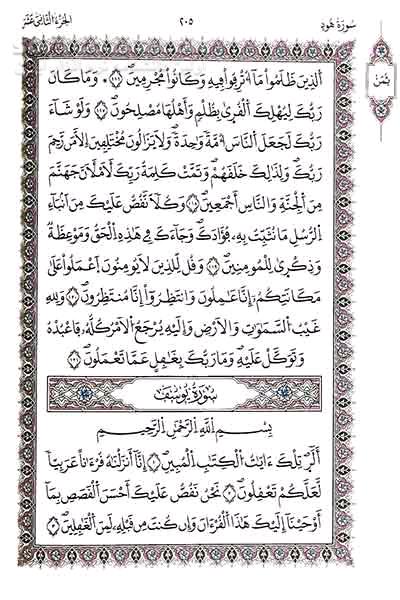 سُورَةُ هُودٍ
٢٠٥
الجُزْءُ الثَّانِي عَشَر
ثُمُن
اَلذِينَ ظَلَمُواْ مَآ أُتْرِفُواْ فِيهِ وَكَانُواْ مُجْرِمِينَ وَمَا كَانَ
رَبُّكَ لِيُهْلِكَ اَلْقُرَىٰ بِظُلْمٍ وَأَهْلُهَا مُصْلِحُونَ وَلَوْ شَآءَ
رَبُّكَ لَجَعَلَ اَلنَّاسَ أُمَّةً وَٰحِدَةً وَلَا يَزَالُونَ مُخْتَلِفِينَ إِلَّا مَن رَّحِمَ
رَبُّكَ وَلِذَٰلِكَ خَلَقَهُمْ وَتَمَّتْ كَلِمَةُ رَبِّكَ لَأَمْلَأَنَّ جَهَنَّمَ
مِنَ اَلْجِنَّةِ وَالنَّاسِ أَجْمَعِينَ وَكُلًّا نَّقُصُّ عَلَيْكَ مِنَ اَنۢبَآءِ
اِلرُّسُلِ مَا نُثَبِّتُ بِهِۦ فُؤَادَكَ وَجَآءَكَ فِي هَٰذِهِ اِلْحَقُّ وَمَوْعِظَةٌ
وَذِكْرَىٰ لِلْمُومِنِينَ وَقُل لِّلذِينَ لَا يُومِنُونَ اَعْمَلُواْ عَلَىٰ
مَكَانَتِكُمُۥٓ إِنَّا عَٰمِلُونَ وَانتَظِرُوٓاْ إِنَّا مُنتَظِرُونَ وَلِلهِ
غَيْبُ اُلسَّمَٰوَٰتِ وَالْأَرْضِ وَإِلَيْهِ يَرْجِعُ اُلْأَمْرُ كُلُّهُۥ فَاعْبُدْهُ
وَتَوَكَّلْ عَلَيْهِ وَمَا رَبُّكَ بِغَٰفِلٍ عَمَّا تَعْمَلُونَ
سُورَةُ يُوسُفَ
بِسْمِ اِللهِ اِلرَّحْمَٰنِ اِلرَّحِيمِ
أَلَٓر تِلْكَ ءَايَٰتُ اُلْكِتَٰبِ اِلْمُبِينِ إِنَّآ أَنزَلْنَٰهُ قُرْءَٰناً عَرَبِيّاً
لَّعَلَّكُمْ تَعْقِلُونَ نَحْنُ نَقُصُّ عَلَيْكَ أَحْسَنَ اَلْقَصَصِ بِمَآ
أَوْحَيْنَآ إِلَيْكَ هَٰذَا اَلْقُرْءَانَ وَإِن كُنتَ مِن قَبْلِهِۦ لَمِنَ اَلْغَٰفِلِينَ